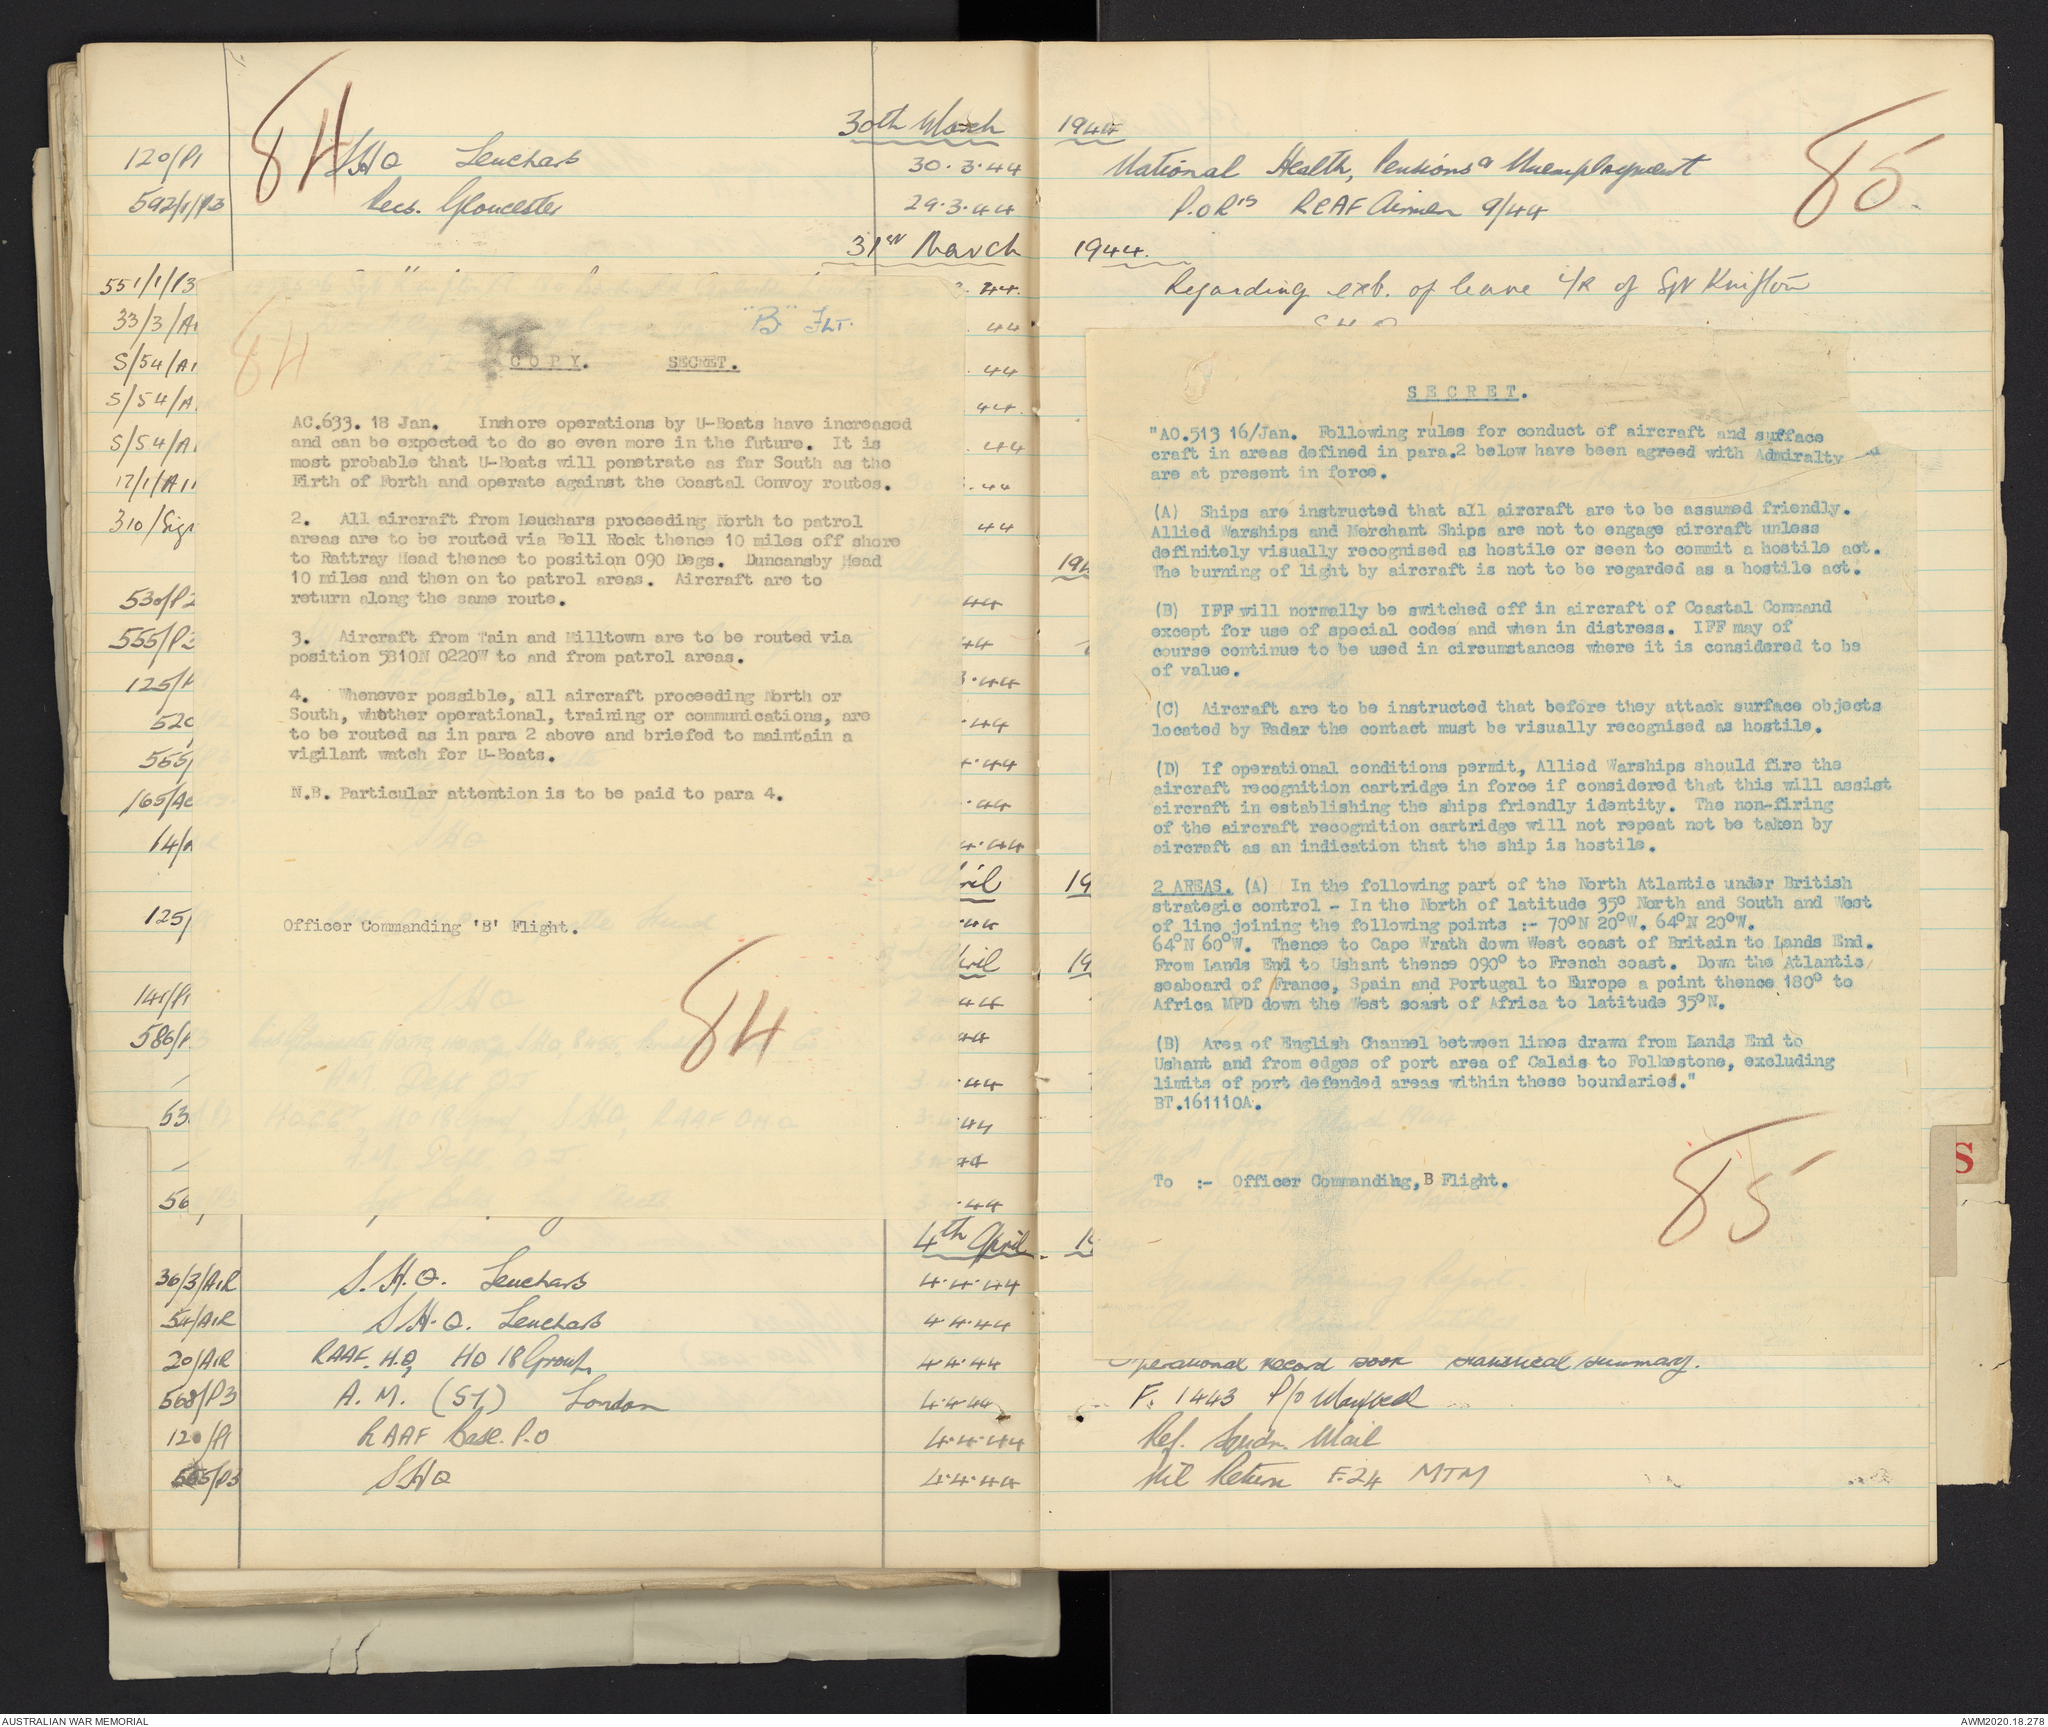 84
30th March
120/P1 SHQ Leuchars 30.3.44
592/1/P3 Recs. Gloucester 29.3.44
31st March
551/1/P3
33/3/A
S/54/A
S/54/A
S/54/A
17/1/A
310/Sigs
530/P2
555/P3
125/P
520
555/
165/Ac
14/
125/
141/P1
586/P
53
56
84
"B" FLT.
COPY. SECRET.
AC.633. 18 Jan. Inshore operations by U-Boats have increased
and can be expected to do so even more in the future. It is
most probable that U-Boats will penetrate as far South as the
Firth of Forth and operate against the Coastal Convoy routes.
2. All aircraft from Leuchars proceeding North to patrol
areas are to be routed via Bell Rock thence 10 miles off shore
to Rattray Head thence to position 090 Degs. Duncansby Head
10 miles and then on to patrol areas. Aircraft are to
return along the same route.
3. Aircraft from Tain and Milltown are to be routed via
position 5810N 0220W to and from patrol areas.
4. Whenever possible, all aircraft proceeding North or
South, whether operational, training or communications, are
to be routed as in para 2 above and briefed to maintain a
vigilant watch for U-Boats.
N.B. Particular attention is to be paid to para 4.
Officer Commanding 'B' Flight.
84
4th April
36/3/AIR S.H.Q. Leuchars 4.4.44
54/AIR S.H.Q. Leuchars 4.4.44
20/AIR RAAF. H.Q, HQ 18 Group. 4.4.44
568/P3 A.M. (S7) London 4.4.44
120/P1 RAAF Base. P.O 4.4.44
555/P3 SHQ 4.4.44
85
1944
National Health, Pensions & Unemployment
P.O.R's RCAF Airmen 9/44
1944.
Regarding ext. of leave i/R of Sgt Knifton
SECRET.
"AO.513 16/Jan. Following rules for conduct of aircraft and surface
craft in areas defined in para.2 below have been agreed with Admiralty
are at present in force.
(A) Ships are instructed that all aircraft are to be assumed friendly.
Allied Warships and Merchant Ships are not to engage aircraft unless
definitely visually recognised as hostile or seen to commit a hostile act.
The burning of light by aircraft is not to be regarded as a hostile act.
(B) IFF will normally be switched off in aircraft of Coastal Command
except for use of special codes and when in distress. IFF may of
course continue to be used in circumstances where it is considered to be
of value.
(C) Aircraft are to be instructed that before they attack surface objects
located by Radar the contact must be visually recognised as hostile.
(D) If operational conditions permit, Allied Warships should fire the
aircraft recognition cartridge in force if considered that this will assist
aircraft in establishing the ships friendly identity. The non-firing
of the aircraft recognition cartridge will not repeat not be taken by
aircraft as an indication that the ship is hostile.
2 AREAS. (A) In the following part of the North Atlantic under British
strategic control - In the North of latitude 35° North and South and West
of line joining the following points :- 70°N 20°W. 64°N 20°W.
64°N 60°W. Thence to Cape Wrath down West coast of Britain to Lands End.
From Lands End to Ushant thence 090° to French coast. Down the Atlantic
seaboard of France, Spain and Portugal to Europe a point thence 180° to
Africa MPD down the West coast of Africa to latitude 35°N.
(B) Area of English Channel between lines drawn from Lands End to
Ushant and from edges of port area of Calais to Folkestone, excluding
limits of port defended areas within these boundaries."
BT.161110A.
To :- Officer Commanding, B Flight.
85
S
Operational Record Book Statistical Summary.
F. 1443 P/O
Ref. Squdn. Mail
Nil Return F.24 MTM
AUSTRALIAN WAR MEMORIAL
AWM2020.18.278